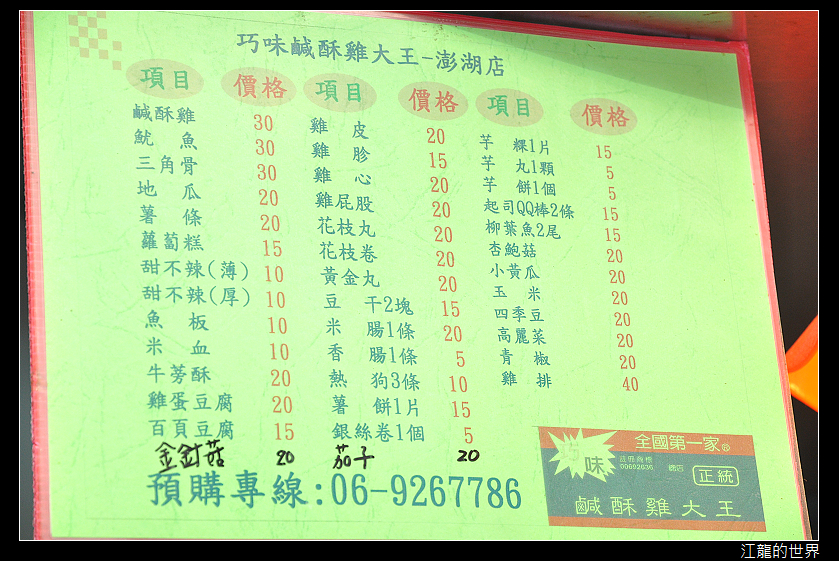 巧味鹹酥雞大王-澎湖店
項目 價格 項目 價格 項目 價格
鹹酥雞 30 雞皮 20 芋粿1片 15
魷魚 30 雞胗 15 芋丸1顆 5
三角骨 30 雞心 20 芋餅1個 5
地瓜 20 雞屁股 20 起司QQ棒2條 15
薯條 20 花枝丸 20 柳葉魚2尾 15
蘿蔔糕 15 花枝卷 20 杏鮑菇 20
甜不辣(薄) 10 黃金丸 20 小黃瓜 20
甜不辣(厚) 10 豆干2塊 15 玉米 20
魚板 10 米腸1條 20 四季豆 20
米血 10 香腸1條 5 高麗菜 20
牛蒡酥 20 熱狗3條 10 青椒 20
雞蛋豆腐 20 薯餅1片 15 雞排 40
百頁豆腐 15 銀絲卷1個 5
金針菇 20 茄子 20
預購專線:06-9267786
全國第一家®
巧味
註冊商標
00692636
正統
鹹酥雞大王
江龍的世界